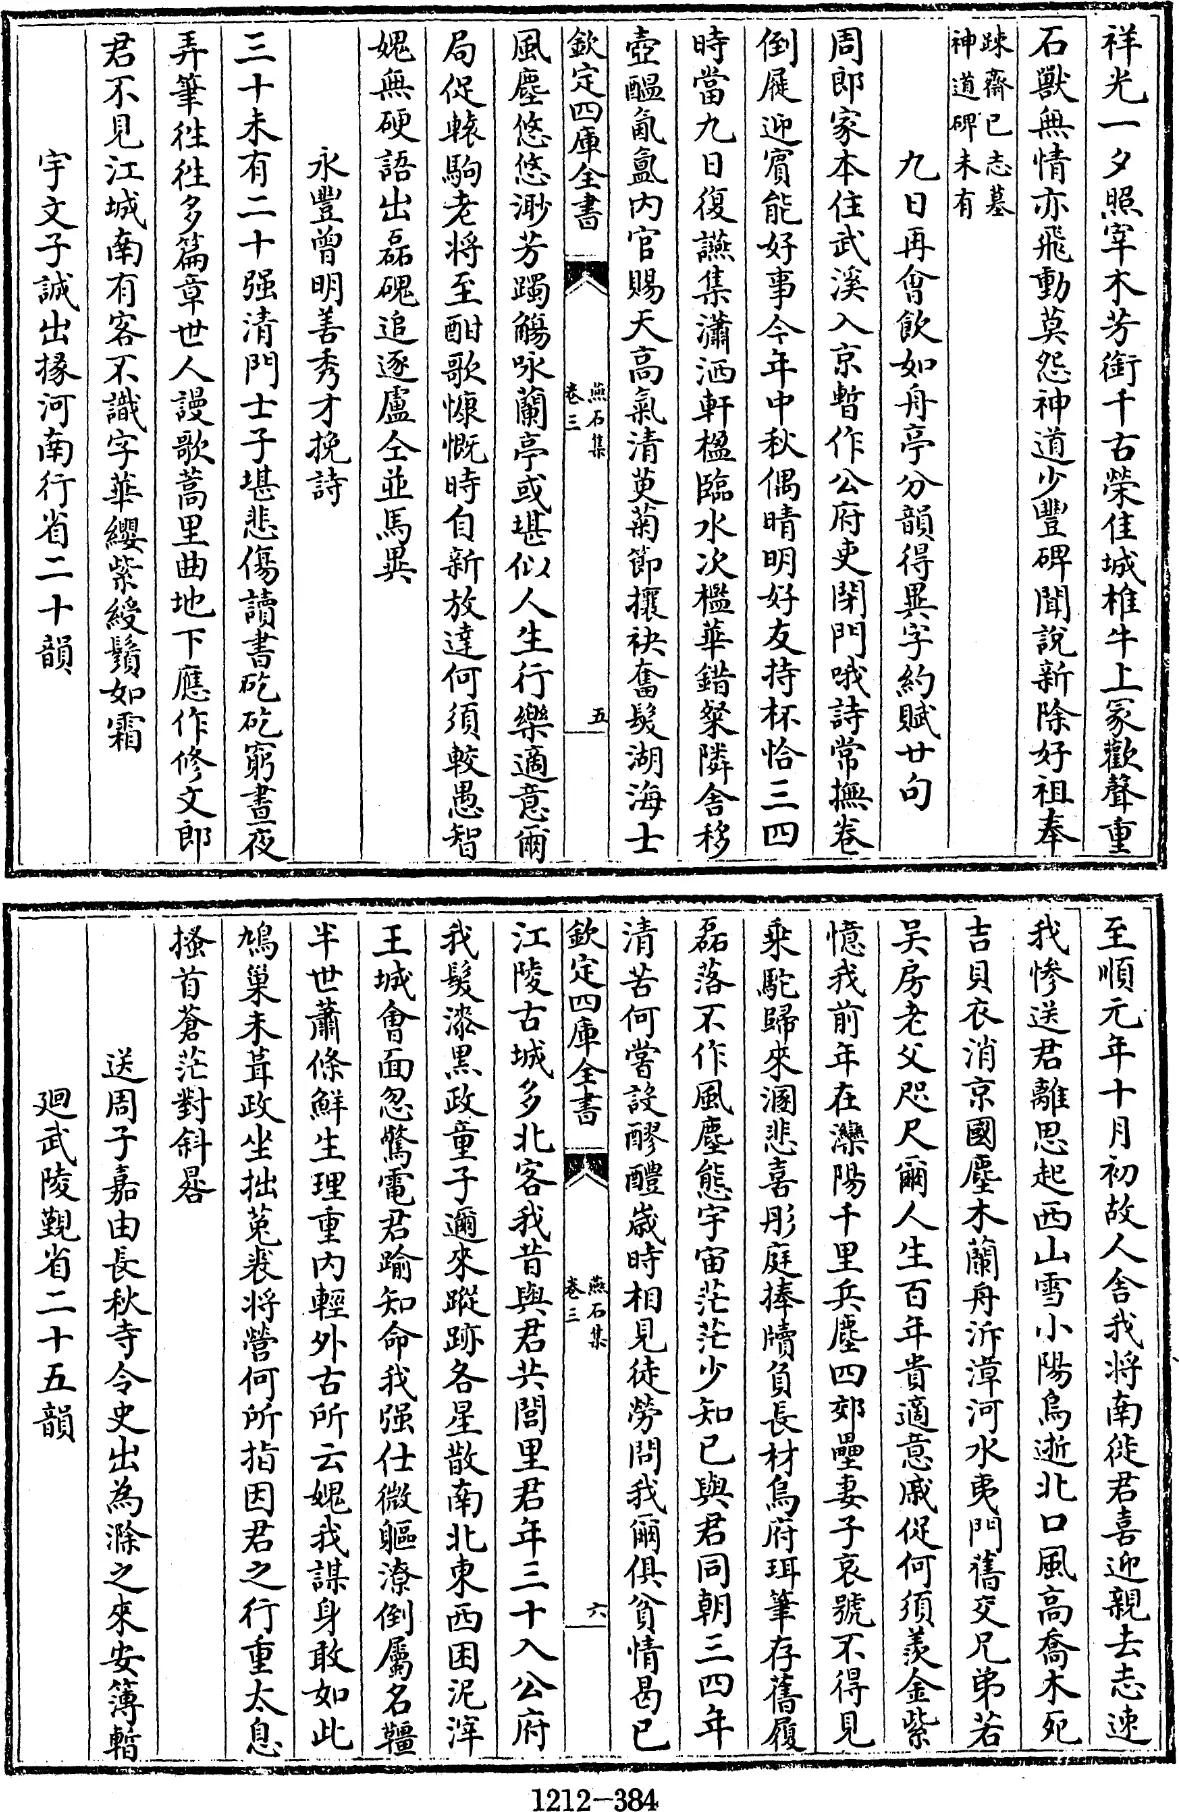 祥光一夕照宰木芳銜千古榮佳城椎牛上冢歡聲重
石獸無情亦飛動莫怨神道少豐碑聞說新除好祖奉
踈齋已志墓
神道碑未有
九日再會飲如舟亭分韻得異字約賦廿句
周郎家本住武溪入京暫作公府吏閉門哦詩常撫卷
倒屣迎賔能好事今年中秋偶晴明好友持杯恰三四
時當九日復讌集瀟洒軒楹臨水次檻華錯粲隣舍移
壺醖氤氲内官賜天高氣清萸菊節攘袂奮髮湖海士
欽定四庫全書
燕石集
卷三
五
風塵悠悠渺芳躅觴咏蘭亭或堪似人生行樂適意爾
局促轅駒老將至酣歌慷慨時自新放達何須較愚智
媿無硬語出磊磈追逐盧仝並馬異
永豐曾明善秀才挽詩
三十未有二十强清門士子堪悲傷讀書矻矻窮晝夜
弄筆徃徃多篇章世人謾歌蒿里曲地下應作修文郎
君不見江城南有客不識字華纓紫綬鬚如霜
宇文子誠出掾河南行省二十韻
至順元年十月初故人舍我將南徙君喜迎親去志速
我慘送君離思起西山雪小陽烏逝北口風高喬木死
吉貝衣消京國塵木蘭舟泝漳河水夷門舊交兄弟若
吴房老父咫尺爾人生百年貴適意戚促何須羨金紫
憶我前年在灤陽千里兵塵四郊壘妻子哀號不得見
乘駝歸來溷悲喜彤庭捧牘負長材烏府珥筆存舊履
磊落不作風塵態宇宙茫茫少知已與君同朝三四年
清苦何嘗設醪醴歲時相見徒勞問我爾俱貧情曷已
欽定四庫全書
燕石集
卷三
六
江陵古城多北客我昔與君共閭里君年三十入公府
我髮漆黑政童子邇來蹤跡各星散南北東西困泥滓
王城會面忽驚電君踰知命我强仕微軀潦倒屬名韁
半世蕭條鮮生理重内輕外古所云媿我謀身敢如此
鳩巢未葺政坐拙莵裘將營何所指因君之行重太息
搔首蒼茫對斜晷
送周子嘉由長秋寺令史出為滁之來安簿暫
迴武陵覲省二十五韻
1212-384